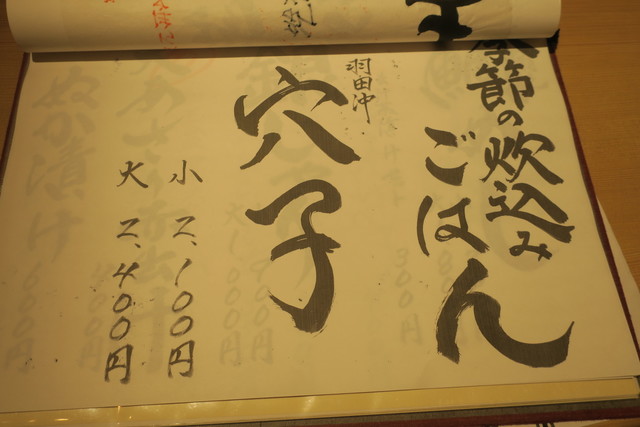 季節の炊込み
ごはん
羽田沖
穴子
小 2,100円
大 2,400円